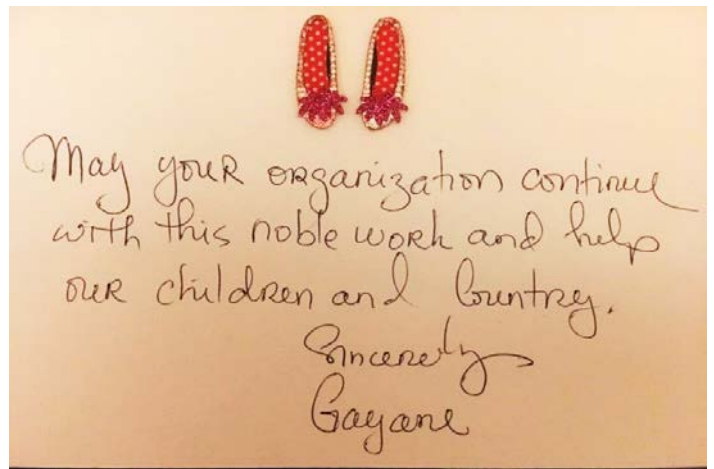 May your organization continue
with this noble work and help
our children and Country.
Sincerely
Gayane